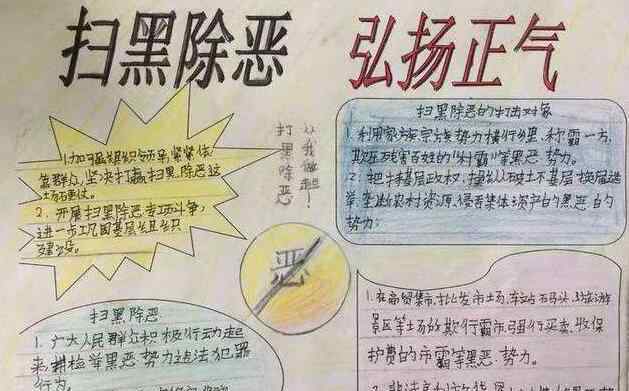 扫黑除恶 弘扬正气
1.加强组织领导,紧紧依
靠群众,坚决打赢扫黑除恶这
2.开展扫黑除恶专项斗争,
进一步巩固基层
建设。
打黑除恶
从我做起!
恶
扫黑除恶的打击对象
1.利用家族宗族势力横行乡里,称霸一方,
欺压残害百姓的"村霸"等黑恶势力。
2.把持基层政权,操纵破坏基层换届选
举,垄断农村资源,侵吞集体资产的黑恶的
势力;
扫黑除恶
1.广大人民群众积极行动起
来,检举黑恶势力违法犯罪
行为。
1.在商贸集市,批发市场,车站码头,旅游
景区等场的欺行霸市,强行买卖,收保
护费的市霸等黑恶势力。